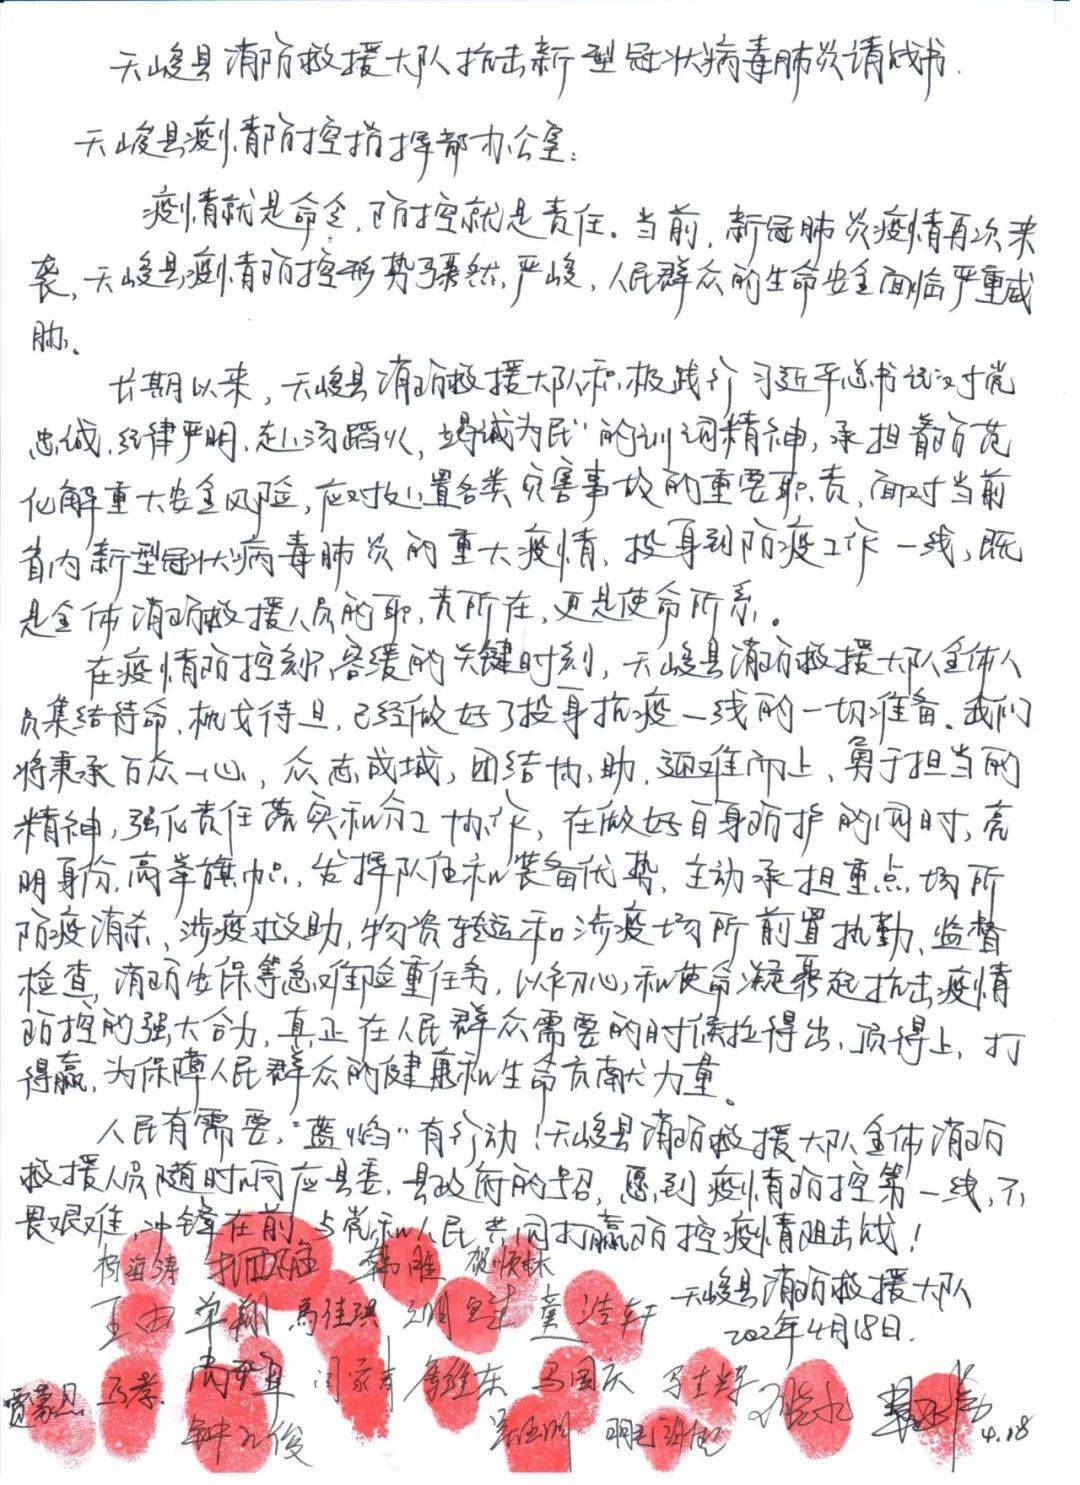 天峻县消防救援大队抗击新型冠状病毒肺炎请战书.
天峻县疫情防控指挥部办公室：
疫情就是命令,防控就是责任。当前,新冠肺炎疫情再次来
袭,天峻县疫情防控形势骤然严峻,人民群众的生命安全面临严重威
胁。
长期以来,天峻县消防救援大队积极践行习近平总书记"对党
忠诚,纪律严明,赴汤蹈火,竭诚为民"的训词精神,承担着防范
化解重大安全风险,应对处置各类灾害事故的重要职责,面对当前
省内新型冠状病毒肺炎的重大疫情,投身到防疫工作一线,既
是全体消防救援人员的职责所在,更是使命所系。
在疫情防控刻不容缓的关键时刻,天峻县消防救援大队全体人
员集结待命,枕戈待旦,已经做好了投身抗疫一线的一切准备。我们
将秉承万众一心,众志成城,团结协助,迎难而上,勇于担当的
精神,强化责任落实和分工协作,在做好自身防护的同时,亮
明身份,高举旗帜,发挥队伍和装备优势,主动承担重点场所
防疫消杀、涉疫救助,物资转运和涉疫场所前置执勤、监督
检查、消防安保等急难险重任务,以初心和使命凝聚起抗击疫情
防控的强大合力,真正在人民群众需要的时候拉得出,顶得上,打
得赢,为保障人民群众的健康和生命贡献力量。
人民有需要,"蓝焰"有行动!天峻县消防救援大队全体消防
救援人员随时响应县委、县政府的号召,愿到疫情防控第一线,不
畏艰难,冲锋在前,与党和人民共同打赢防控疫情阻击战!
杨海涛 韩雎
天峻县消防救援大队
王 单翔 马佳琪 龚浩轩
2022年4月18日.
贾蒙恩 马孝 闫家奇 詹维东 马国庆
钟 俊 4.18